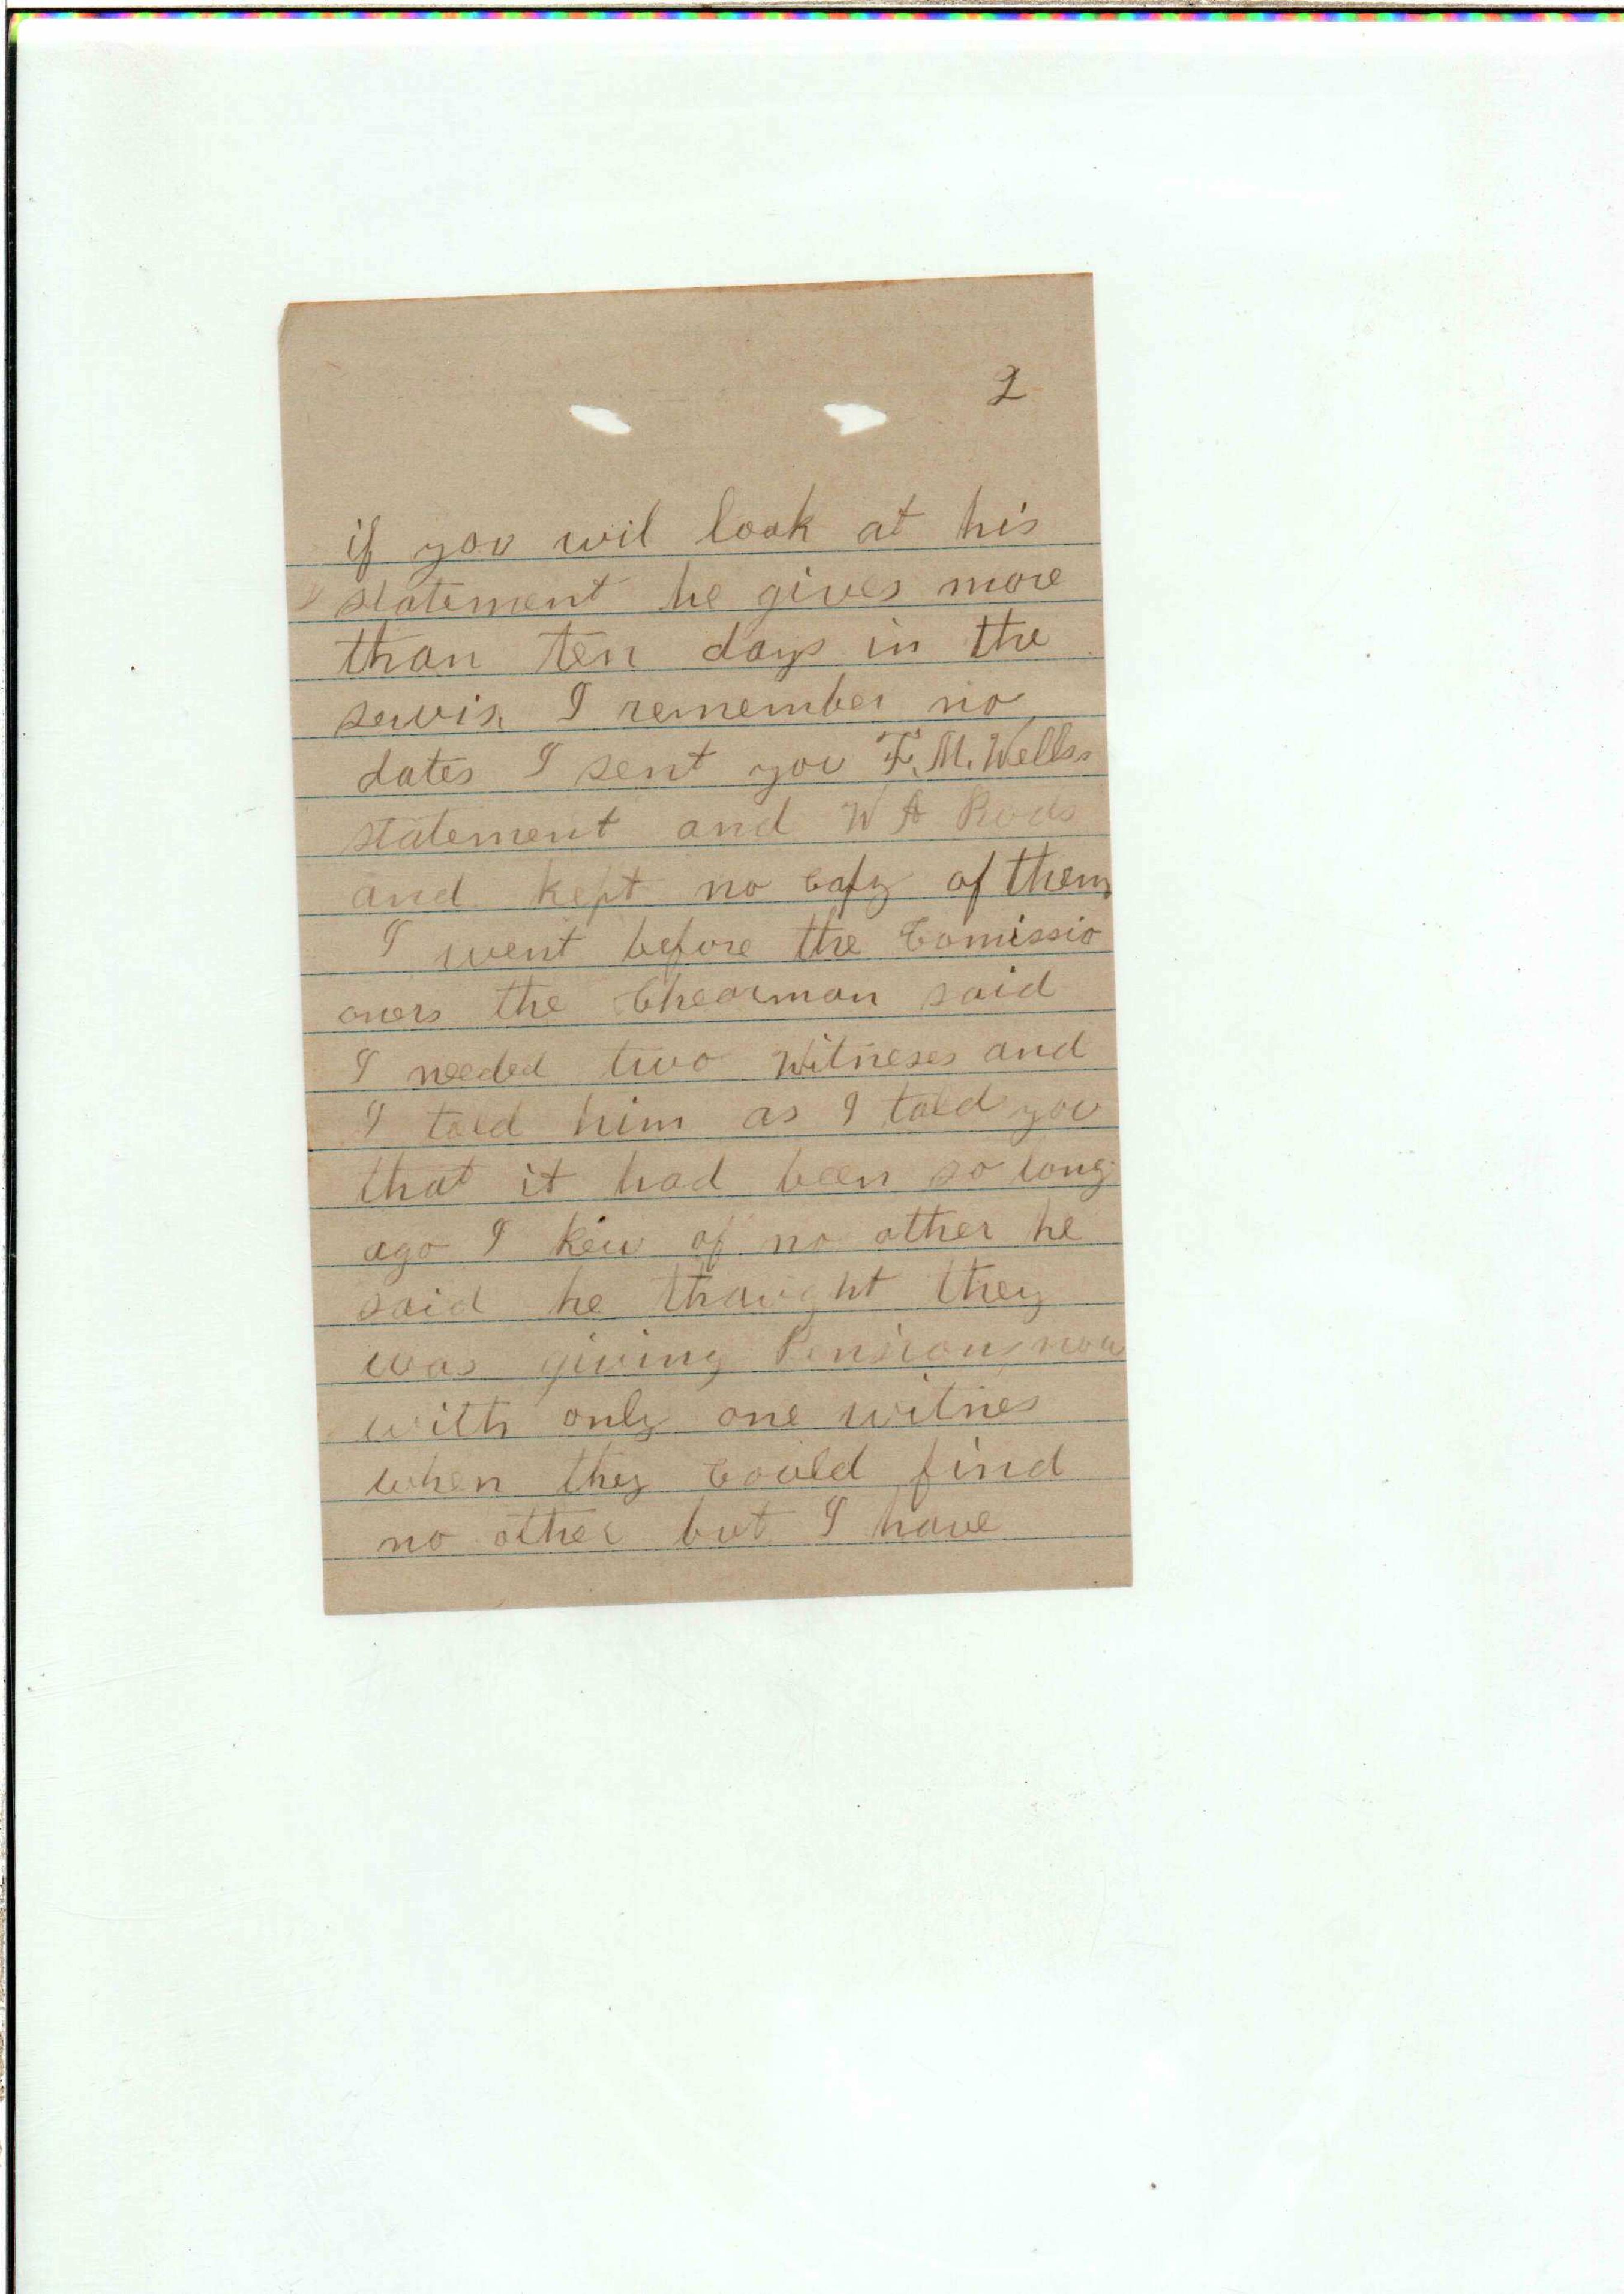 2
if you wil look at his
statement he gives more
than ten days in the
servis I remember no
dates I sent you F. M. Wells
statement and W A Rods
and kept no copy of them
I went before the Comissio
oners the Chearman said
I needed two witneses and
I told him as I told you
that it had been so long
ago I kew of no other he
said he thought they
was giving Pension now
with only one witnes
when they could find
no other but I have